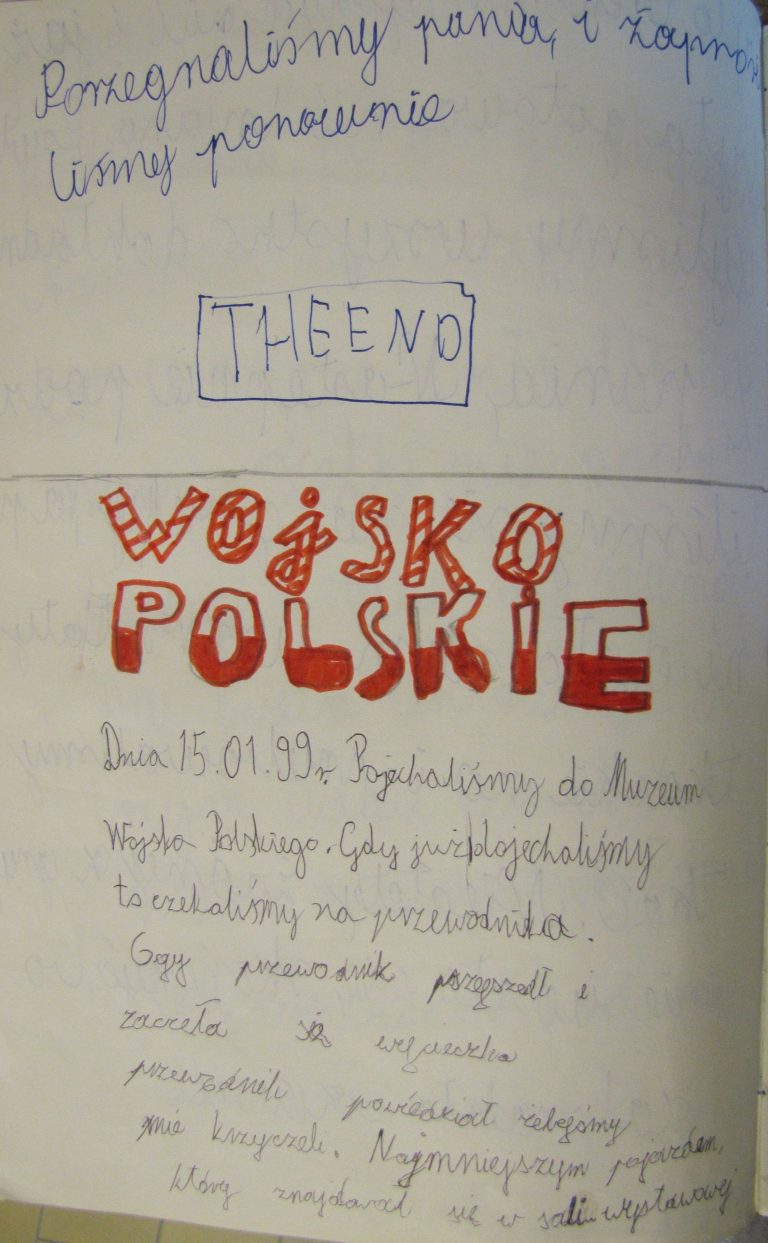 Porzegnaliśmy panią, i zaprosi
liśmy ponownie
THE END
WOJSKO
POLSKIE
Dnia 15.01.99r. Pojechaliśmy do Muzeum
Wojska Polskiego. Gdy już dojechaliśmy
to czekaliśmy na przewodnika.
Gdy przewodnik przyszedł i
zaczeła się wycieczka
przewodnik powiedział żebyśmy
nie krzyczeli. Najmniejszym pojazdem,
który znajdował się w sali wystawowej